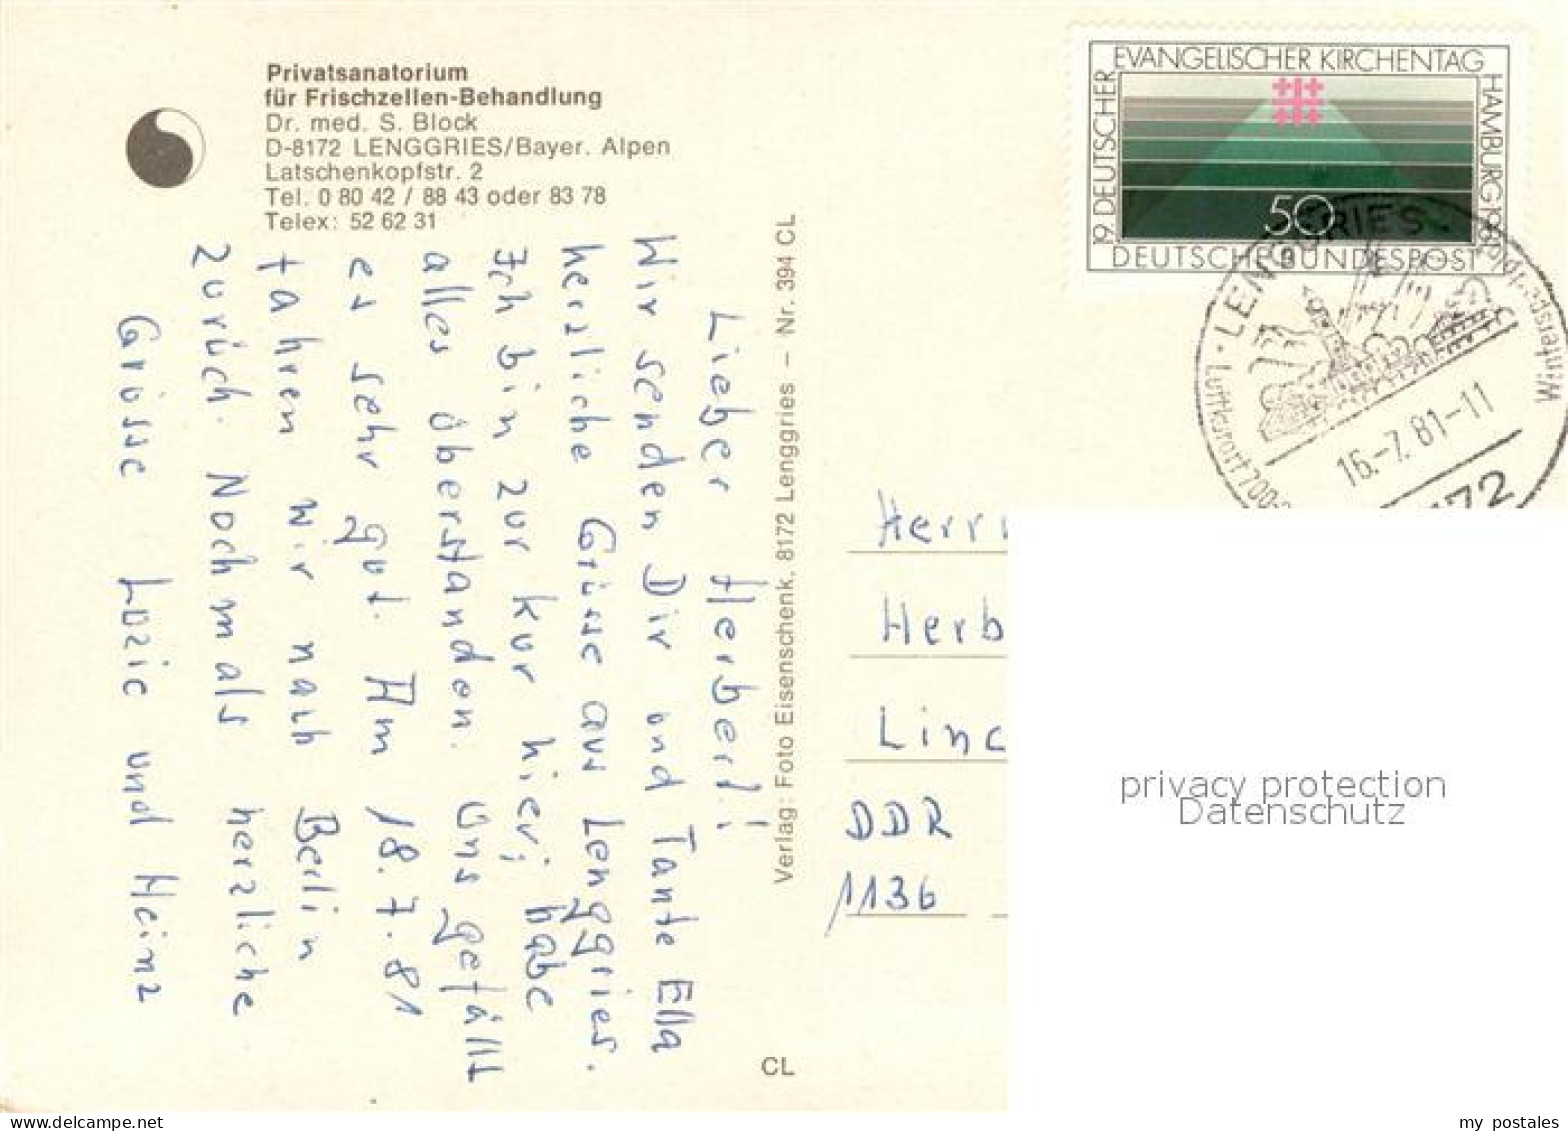 Privatsanatorium
für Frischzellen-Behandlung
Dr. med. S. Block
D-8172 LENGGRIES/Bayer. Alpen
Latschenkopfstr. 2
Tel. 0 80 42 / 88 43 oder 83 78
Telex: 52 62 31
Lieber Herbert!
Wir senden Dir und Tante Ella
herzliche Grüsse aus Lenggries.
Ich bin zur Kur hier; habe
alles überstanden. Uns gefällt
es sehr gut. Am 18.7.81
fahren wir nach Berlin
zurück. Nochmals herzliche
Grüsse Luzie und Heinz
Verlag: Foto Eisenschenk, 8172 Lenggries – Nr. 394 CL
CL
19. DEUTSCHER EVANGELISCHER KIRCHENTAG HAMBURG 1981
50
DEUTSCHE BUNDESPOST
LENGGRIES
Luftkurort 700
Wintersportplatz
16.-7.81-11
8172
Herrn
Herb
Linc
DDR
1136
privacy protection
Datenschutz
my postales